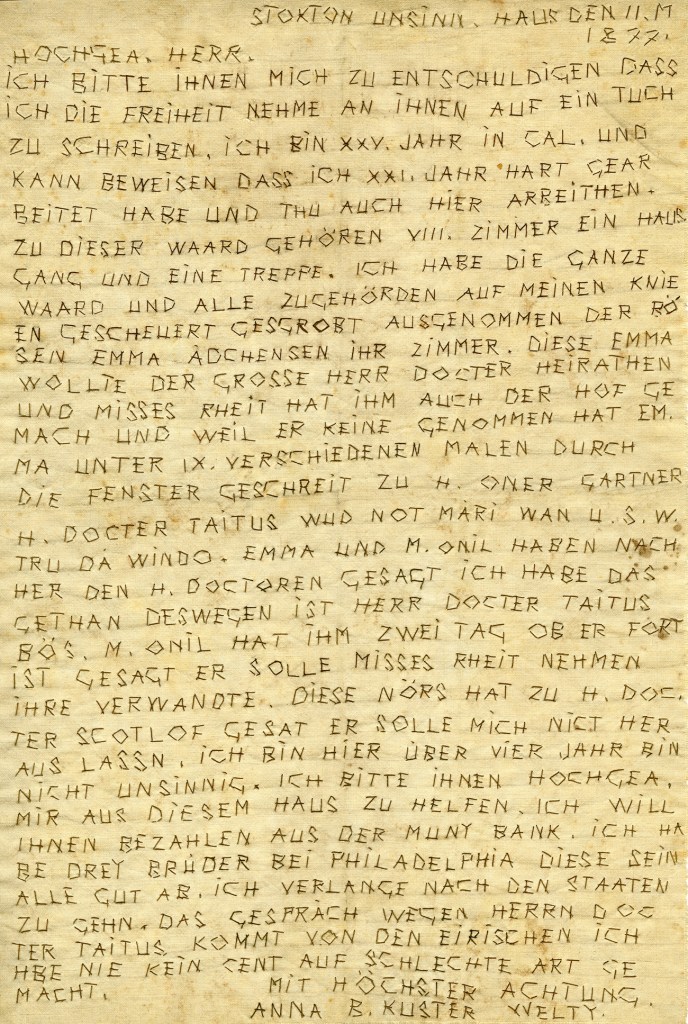 STOKTON UNSINN. HAUS DEN 11. M
1877.
HOCHGEA. HERR.
ICH BITTE IHNEN MICH ZU ENTSCHULDIGEN DASS
ICH DIE FREIHEIT NEHME AN IHNEN AUF EIN TUCH
ZU SCHREIBEN. ICH BIN XXV. JAHR IN CAL. UND
KANN BEWEISEN DASS ICH XXI. JAHR HART GEAR
BEITET HABE UND THU AUCH HIER ARBEITHEN.
ZU DIESER WAARD GEHÖREN VIII. ZIMMER EIN HAUS
GANG UND EINE TREPPE. ICH HABE DIE GANZE
WAARD UND ALLE ZUGEHÖRDEN AUF MEINEN KNIE
EN GESCHEUERT GESGROBT AUSGENOMMEN DER BÖ
SEN EMMA ADCHENSEN IHR ZIMMER. DIESE EMMA
WOLLTE DER GROSSE HERR DOCTER HEIRATHEN
UND MISSES RHEIT HAT IHM AUCH DER HOF GE
MACH UND WEIL ER KEINE GENOMMEN HAT EM.
MA UNTER IX. VERSCHIEDENEN MALEN DURCH
DIE FENSTER GESCHREIT ZU H. ONER GARTNER
H. DOCTER TAITUS WUD NOT MÄRI WAN U.S.W.
TRU DA WINDO. EMMA UND M. ONIL HABEN NACH
HER DEN H. DOCTOREN GESAGT ICH HABE DAS
GETHAN DESWEGEN IST HERR DOCTER TAITUS
BÖS. M. ONIL HAT IHM ZWEI TAG OB ER FORT
IST GESAGT ER SOLLE MISSES RHEIT NEHMEN
IHRE VERWANDTE. DIESE NÖRS HAT ZU H. DOC.
TER SCOTLOF GESAT ER SOLLE MICH NICT HER
AUS LASSN. ICH BIN HIER ÜBER VIER JAHR BIN
NICHT UNSINNIG. ICH BITTE IHNEN HOCHGEA.
MIR AUS DIESEM HAUS ZU HELFEN. ICH WILL
IHNEN BEZAHLEN AUS DER MUNY BANK. ICH HA
BE DREY BRÜDER BEI PHILADELPHIA DIESE SEIN
ALLE GUT AB. ICH VERLANGE NACH DEN STAATEN
ZU GEHN. DAS GESPRÄCH WEGEN HERRN DOC
TER TAITUS KOMMT VON DEN EIRISCHEN ICH
HBE NIE KEIN CENT AUF SCHLECHTE ART GE
MACHT. MIT HÖCHSTER ACHTUNG.
ANNA B. KUSTER WELTY.